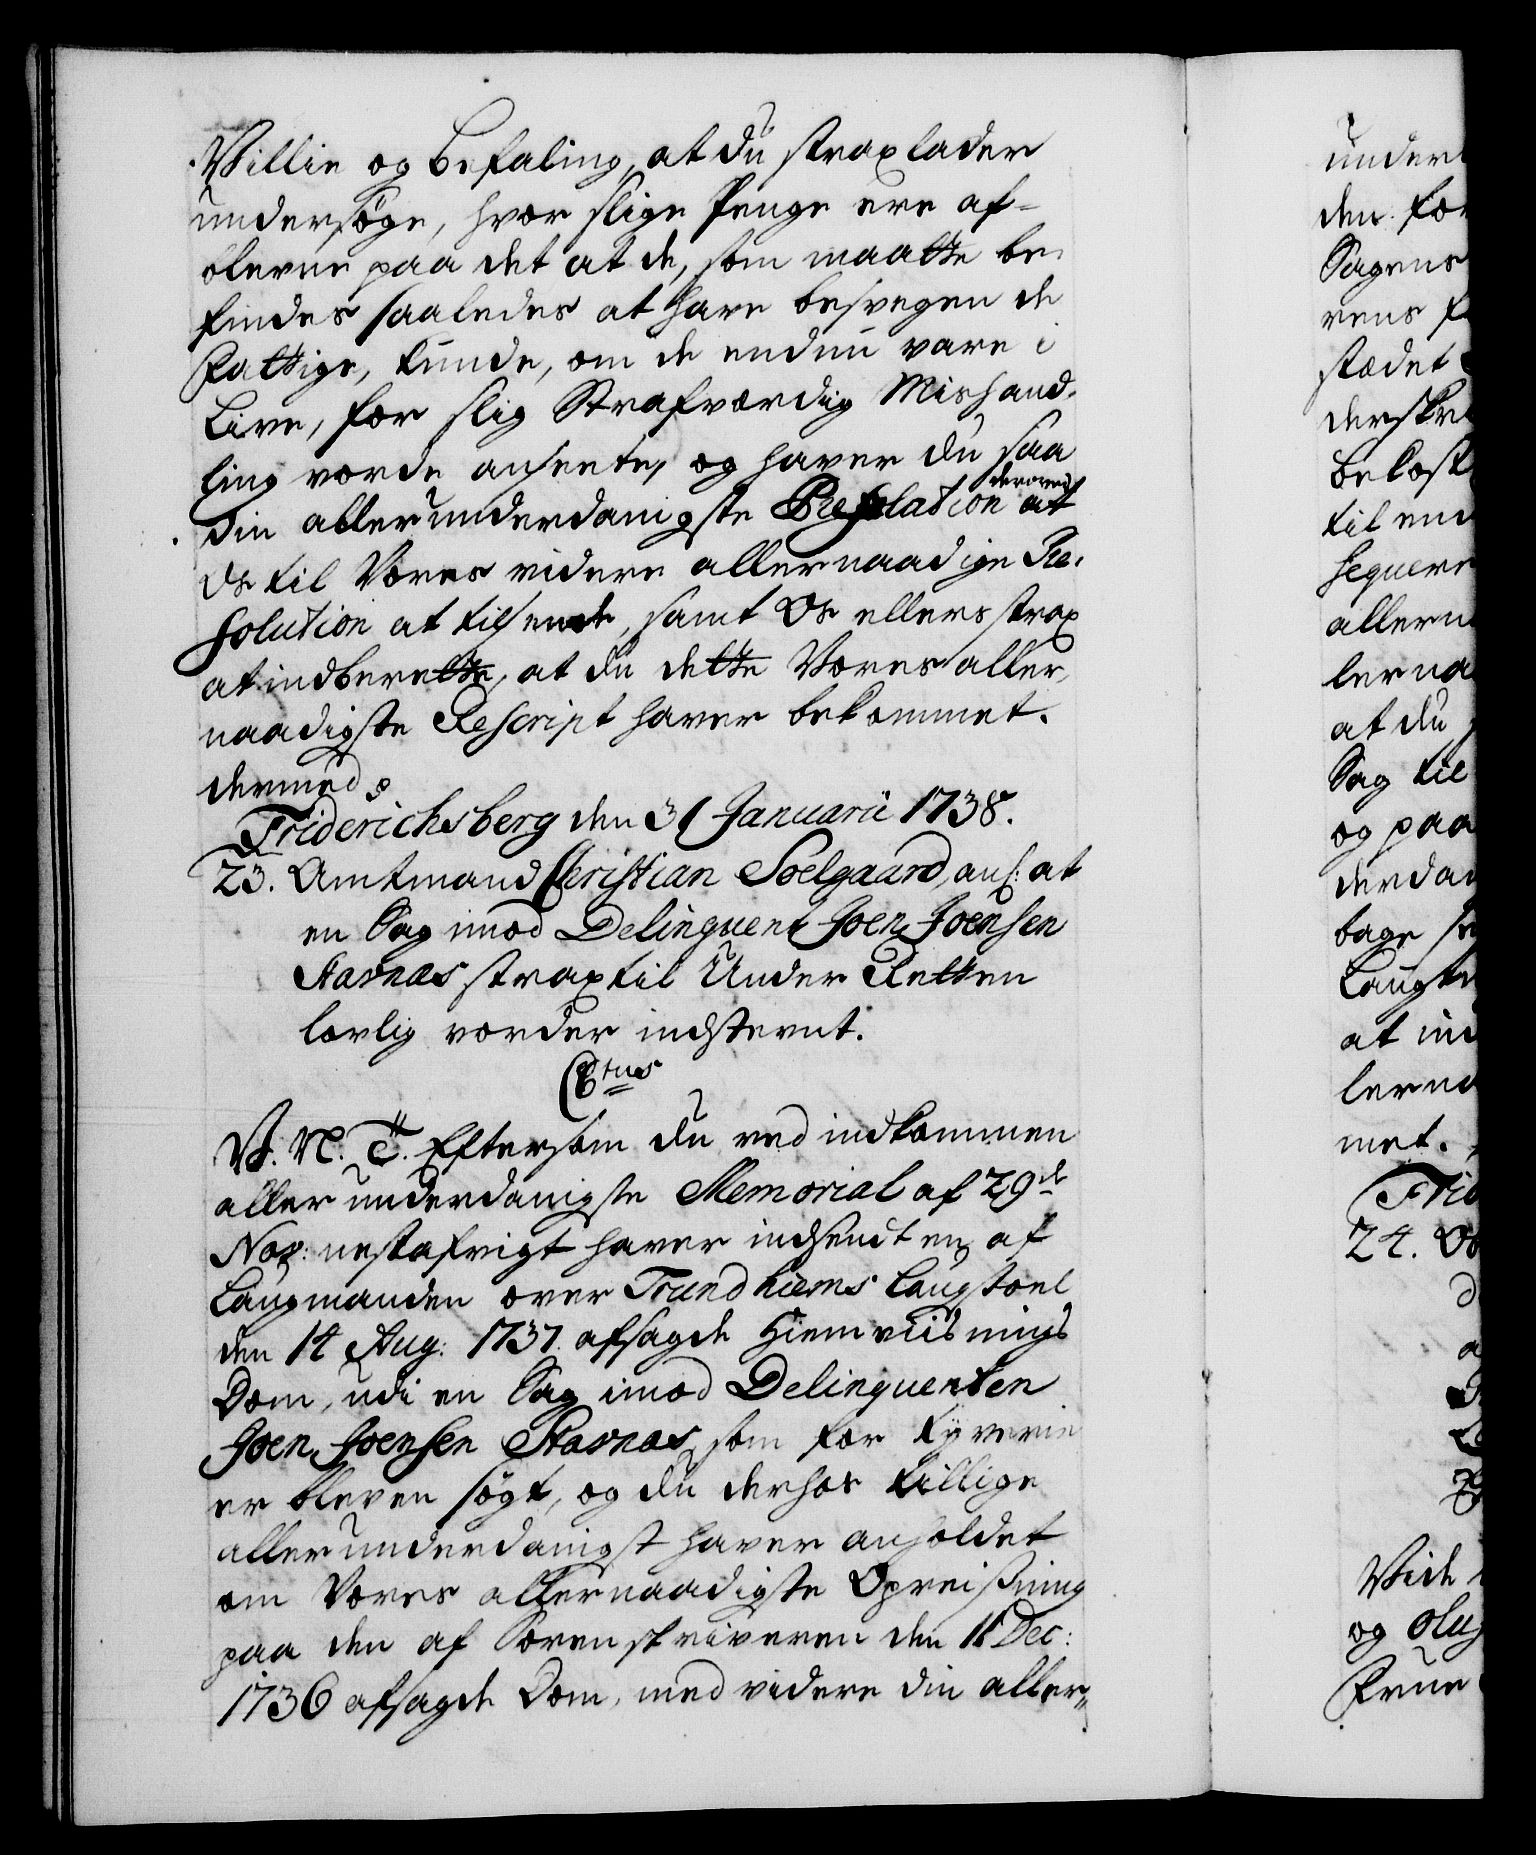 Villie og befaling, at du strax lader
undersøge, hvor slige Penge ere af-
blevne paa det at de, som maatte be-
findes saaledes at have besvegen de
Fattige, kunde, om de endnu vare i
Live, for slig Strafværdig Mishand-
ling vorde anseete, og haver du saa
din allerunderdanigste Relation derover at
Os til Vores videre allernaadigste Re-
solution at tilsende, samt Os ellers strax
at indberette, at du dette Vores aller-
naadigste Rescript haver bekommet.
dermed
Friderichsberg den 31 Januarii 1738.
23. Amtmand Christian Soelgaard, ans: at
en Sag imod Delinquent Joen Joensen
Starnæs strax til Under Retten
lovlig vorder indstevnt.
C6tus
V. N. T. Eftersom du ved indkommen
allerunderdanigste Memorial af 29de
Nov: nestafvigt haver indsendt en af
Laugmanden over Trundhiems Laugstoel
den 14 Aug: 1737. afsagde Hiemviisnings
Dom, udi en Sag imod Delinquenten
Joen Joensen Starnæs, som for Tyverie
er bleven søgt, og du derhos tillige
allerunderdanigst haver anholdet
om Vores allernaadigste Opreisning
paa den af Sorenskriveren den 18 Dec:
1736 afsagde Dom, med videre din aller-
under
den for
Sagens
rens
stædet
derskr
bekost
til end
seqver
allern
lerna
at du
Sag til
og paa
derdan
bage
Laugt
at ind
lerna
met.
Frid
24. Os
Vide
og Oluf
Frue